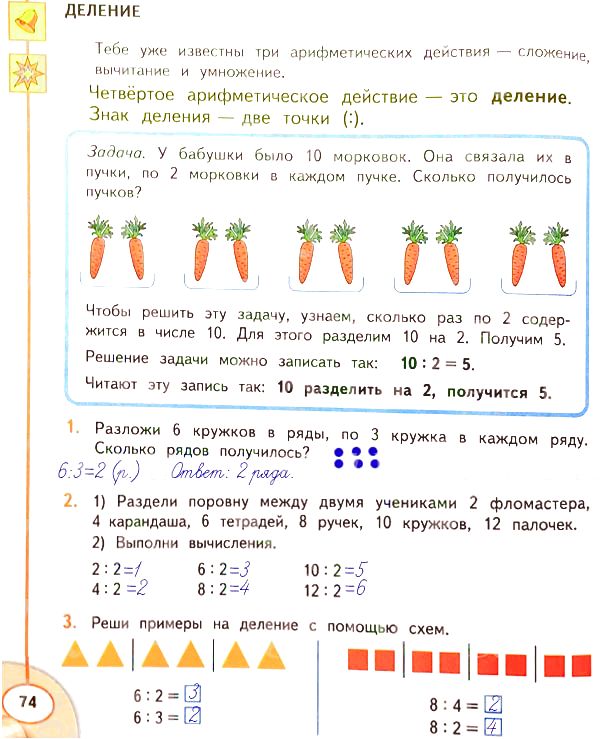 ДЕЛЕНИЕ
Тебе уже известны три арифметических действия — сложение,
вычитание и умножение.
Четвёртое арифметическое действие — это деление.
Знак деления — две точки (:).
Задача. У бабушки было 10 морковок. Она связала их в
пучки, по 2 морковки в каждом пучке. Сколько получилось
пучков?
Чтобы решить эту задачу, узнаем, сколько раз по 2 содер-
жится в числе 10. Для этого разделим 10 на 2. Получим 5.
Решение задачи можно записать так: 10 : 2 = 5.
Читают эту запись так: 10 разделить на 2, получится 5.
1. Разложи 6 кружков в ряды, по 3 кружка в каждом ряду.
Сколько рядов получилось?
6:3=2 (р.) Ответ: 2 ряда.
2. 1) Раздели поровну между двумя учениками 2 фломастера,
4 карандаша, 6 тетрадей, 8 ручек, 10 кружков, 12 палочек.
2) Выполни вычисления.
2 : 2 =1 6 : 2 =3 10 : 2 =5
4 : 2 =2 8 : 2 =4 12 : 2 =6
3. Реши примеры на деление с помощью схем.
6 : 2 = 3 8 : 4 = 2
6 : 3 = 2 8 : 2 = 4
74